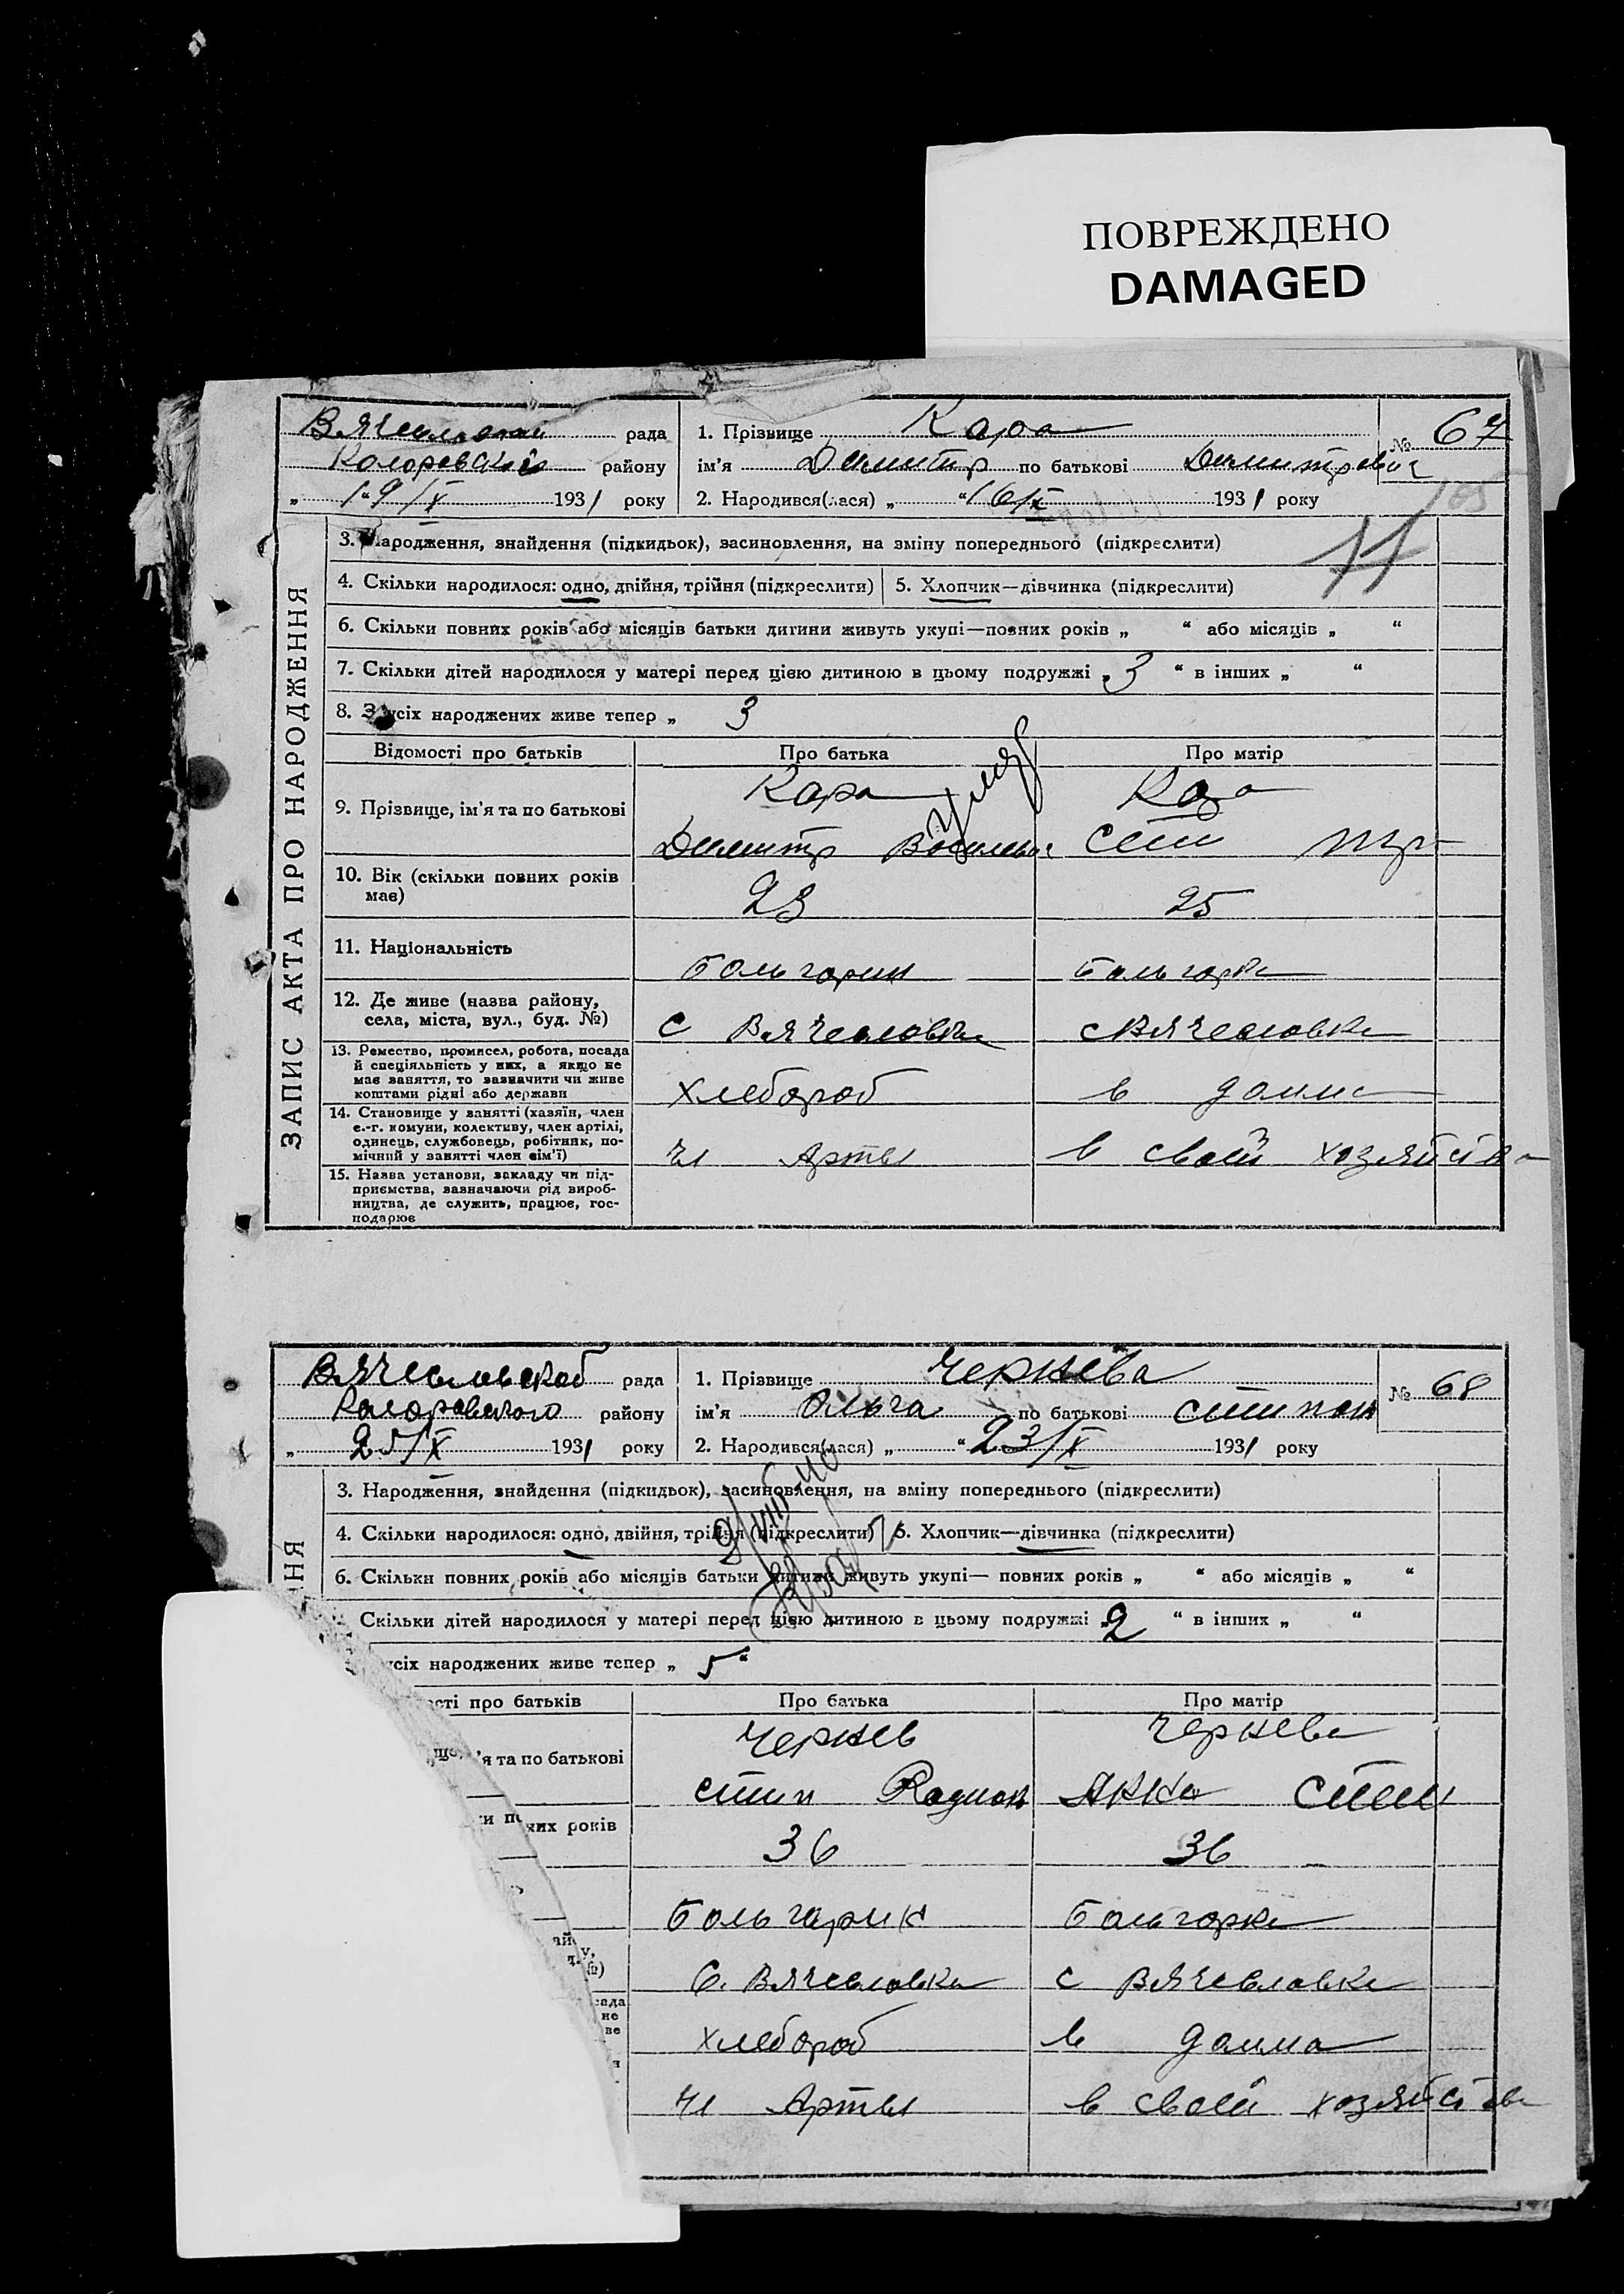 ПОВРЕЖДЕНО
DAMAGED
рада
Колоровского району
„ 19/X 1931 року
1. Прізвище Кара
ім'я Димитр по батькові Димитревич
2. Народився(лася) „ “ 16/X 1931 року
№ 67
11
ЗАПИС АКТА ПРО НАРОДЖЕННЯ
3. Народження, знайдення (підкидьок), засиновлення, на зміну попереднього (підкреслити)
4. Скільки народилося: одно, двійня, трійня (підкреслити) 5. Хлопчик—дівчинка (підкреслити)
6. Скільки повних років або місяців батьки дитини живуть укупі—повних років „ “ або місяців „ “
7. Скільки дітей народилося у матері перед цією дитиною в цьому подружжі „ 3 “ в інших „ “
8. З усіх народжених живе тепер „ 3
Відомості про батьків Про батька Про матір
9. Прізвище, ім'я та по батькові
Кара Кара
Димитр
10. Вік (скільки повних років
має)
23 25
11. Національність
Больгарин Больгарка
12. Де живе (назва району,
села, міста, вул., буд. №)
с Вячесловка с Вячесловка
13. Ремество, промисел, робота, посада
й спеціяльність у них, а якщо не
має заняття, то зазначити чи живе
коштами рідні або держави
хлебороб в дома
14. Становище у занятті (хазяїн, член
с.-г. комуни, колективу, член артілі,
одинець, службовець, робітник, по-
мічний у занятті член сім'ї)
чл Артел в своей хозяйства
15. Назва установи, закладу чи під-
приємства, зазначаючи рід вироб-
ництва, де служить, працює, гос-
подарює
рада
Колоровского району
„ 25/X 1931 року
1. Прізвище Чернева
ім'я Ольга по батькові Стипан
2. Народився(лася) „ “ 23/X 1931 року
№ 68
НЯ
3. Народження, знайдення (підкидьок), засиновлення, на зміну попереднього (підкреслити)
4. Скільки народилося: одно, двійня, трійня (підкреслити) 5. Хлопчик—дівчинка (підкреслити)
9/VIII 40
6. Скільки повних років або місяців батьки дитини живуть укупі— повних років „ “ або місяців „ “
Скільки дітей народилося у матері перед цією дитиною в цьому подружжі „ 2 “ в інших „ “
усіх народжених живе тепер „ 5 “
ості про батьків Про батька Про матір
Чернев Чернева
'я та по батькові
стип Радион Анна Степ
них років
36 36
Больгарин Больгарка
с. Вячесловка с Вячесловка
сада
не
ве
хлебороб в дома
чл Артел в своей хозяйства